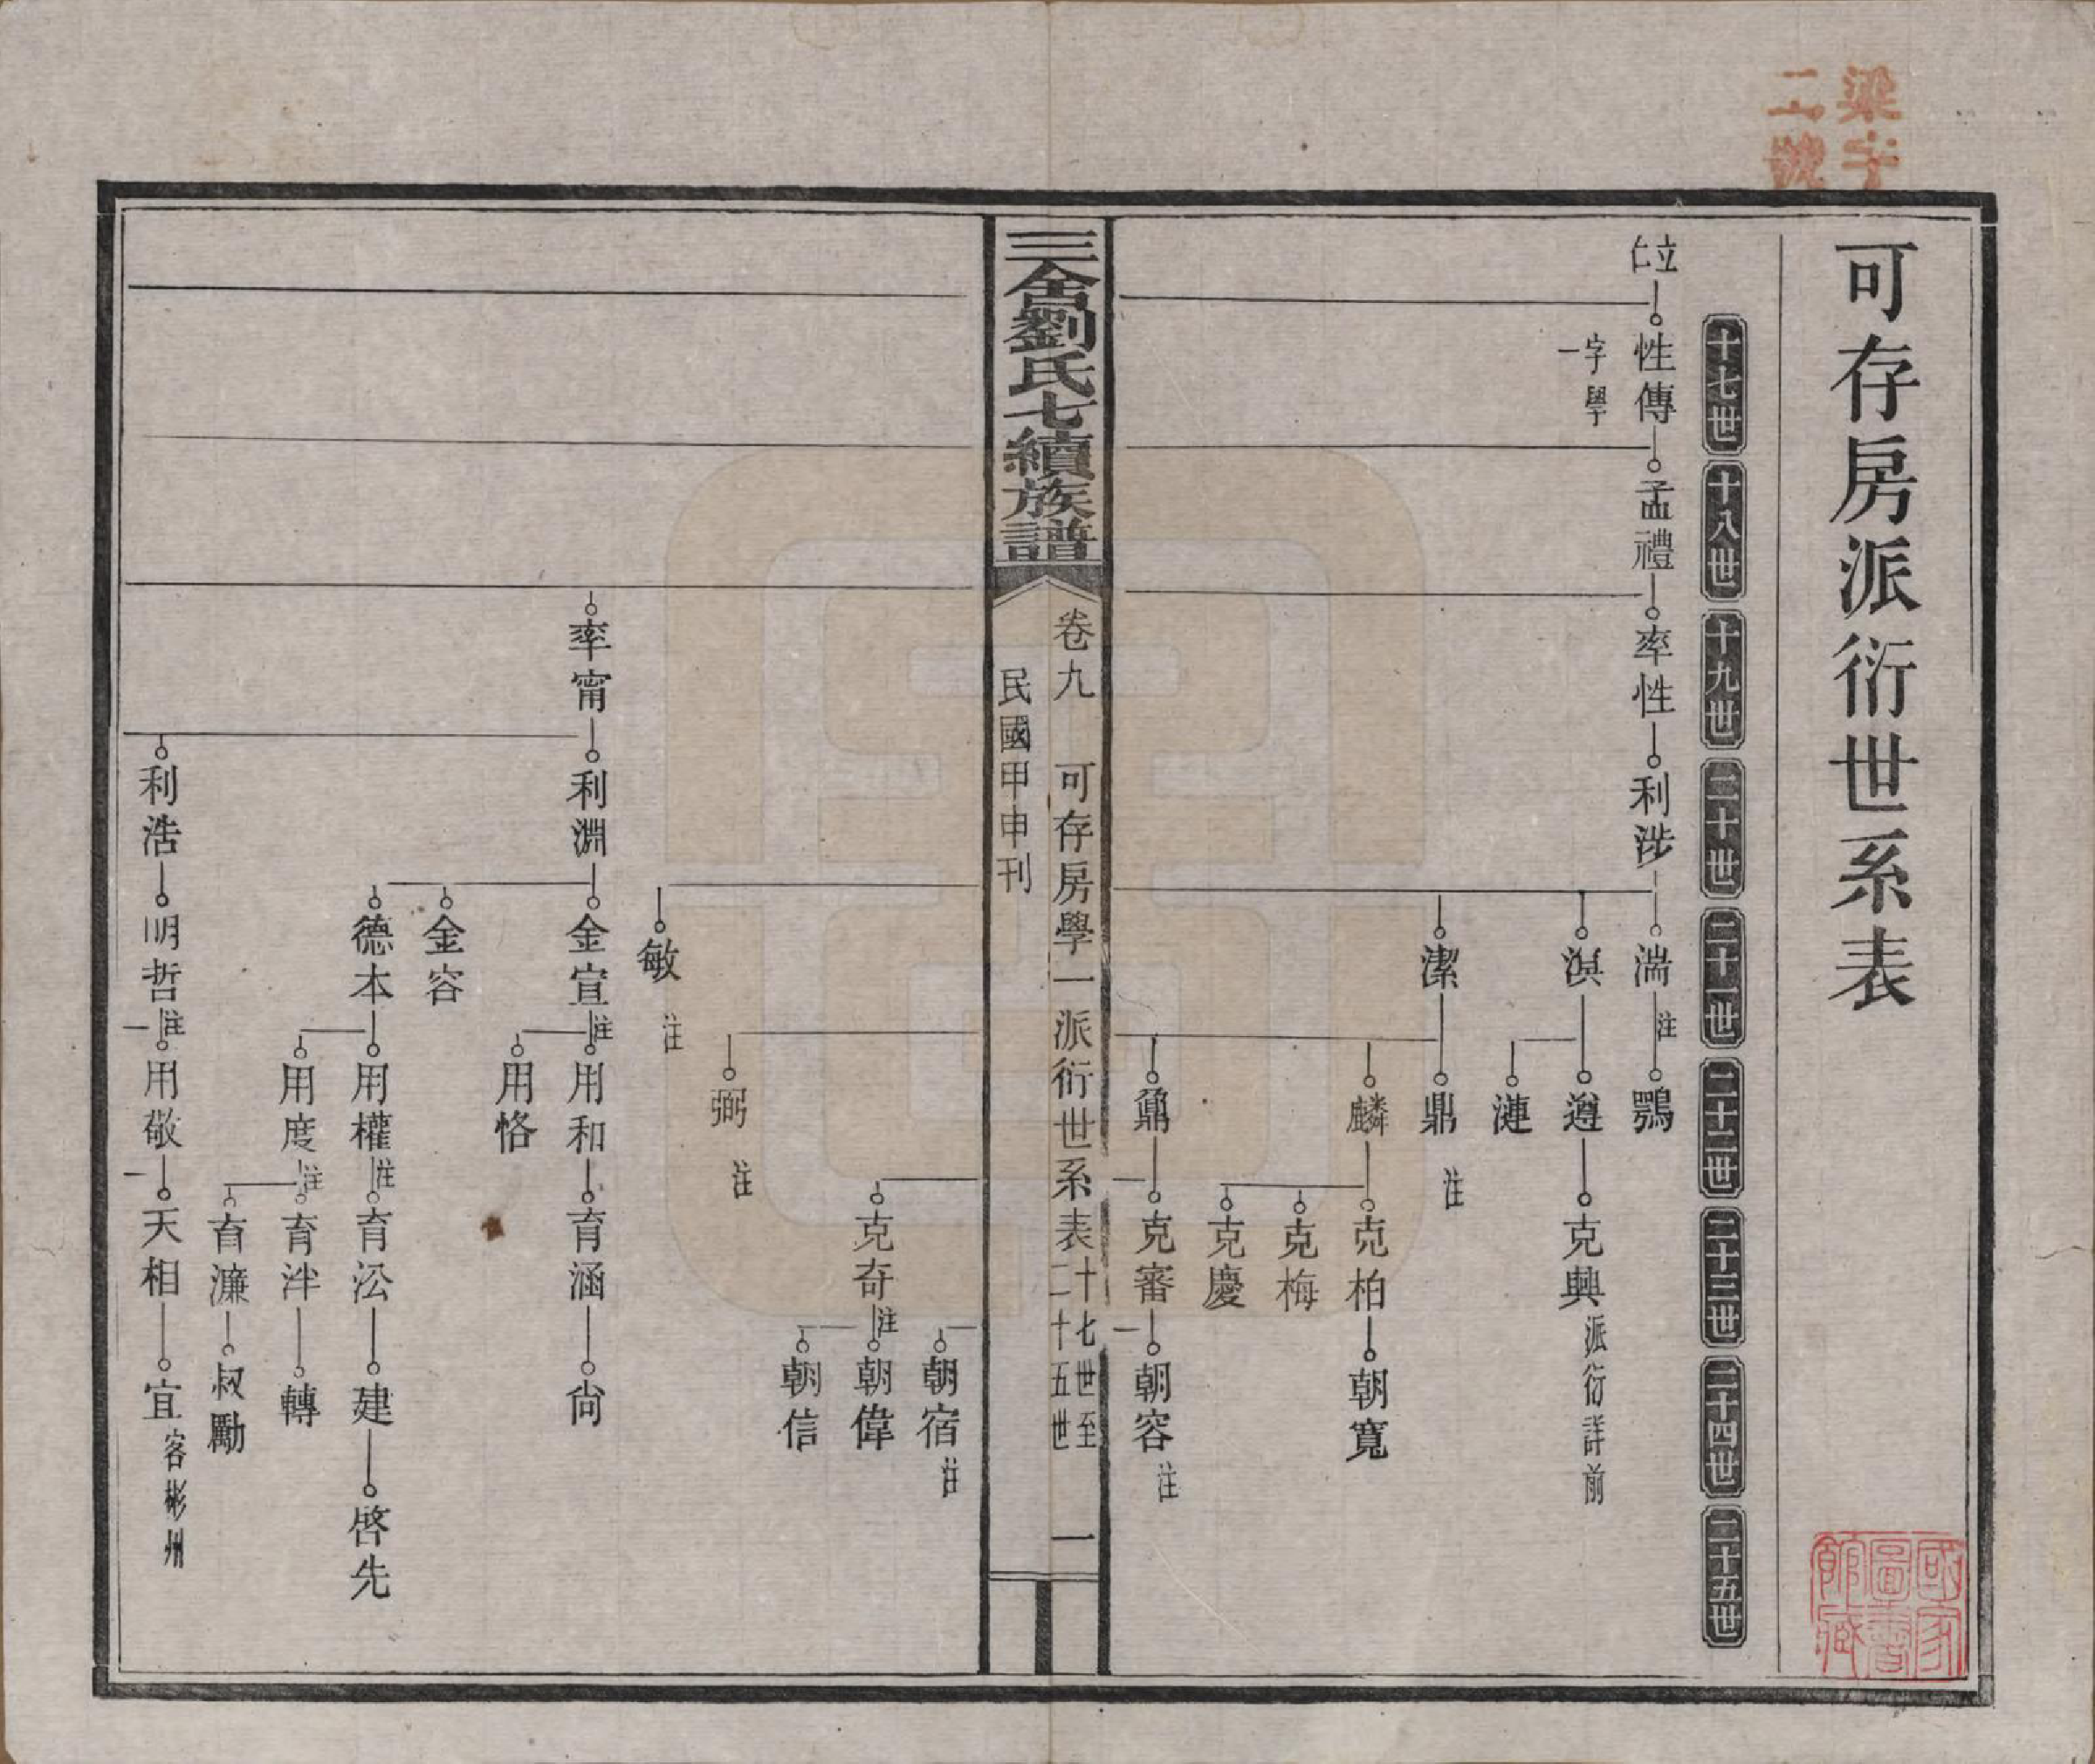 梁字
二號
可存房派衍世系表
十七世
十八世
十九世
二十世
二十一世
二十二世
二十三世
二十四世
二十五世
立仁
性傳
字學一
孟禮
率性
利涉
湍 注
鶚
淏
遵
克興 派衍詳前
漣
潔
鼎 注
麟
克柏
朝寬
克梅
克慶
鼐
克審
朝容 注
三舍劉氏七續族譜
卷九 可存房學一派衍世系表 十七世至二十五世 一
民國甲申刊
朝宿 注
克奇 注
朝偉
朝信
弼 注
敏 注
率甯
利淵
金宣 注
用和
育涵
尙
用恪
金容
德本
用權 注
育泓
建
啓先
用度 注
育泮
轉
育濂
叔勵
利浩
明哲 注
用敬
天相
宜 客彬州
國家圖書館藏